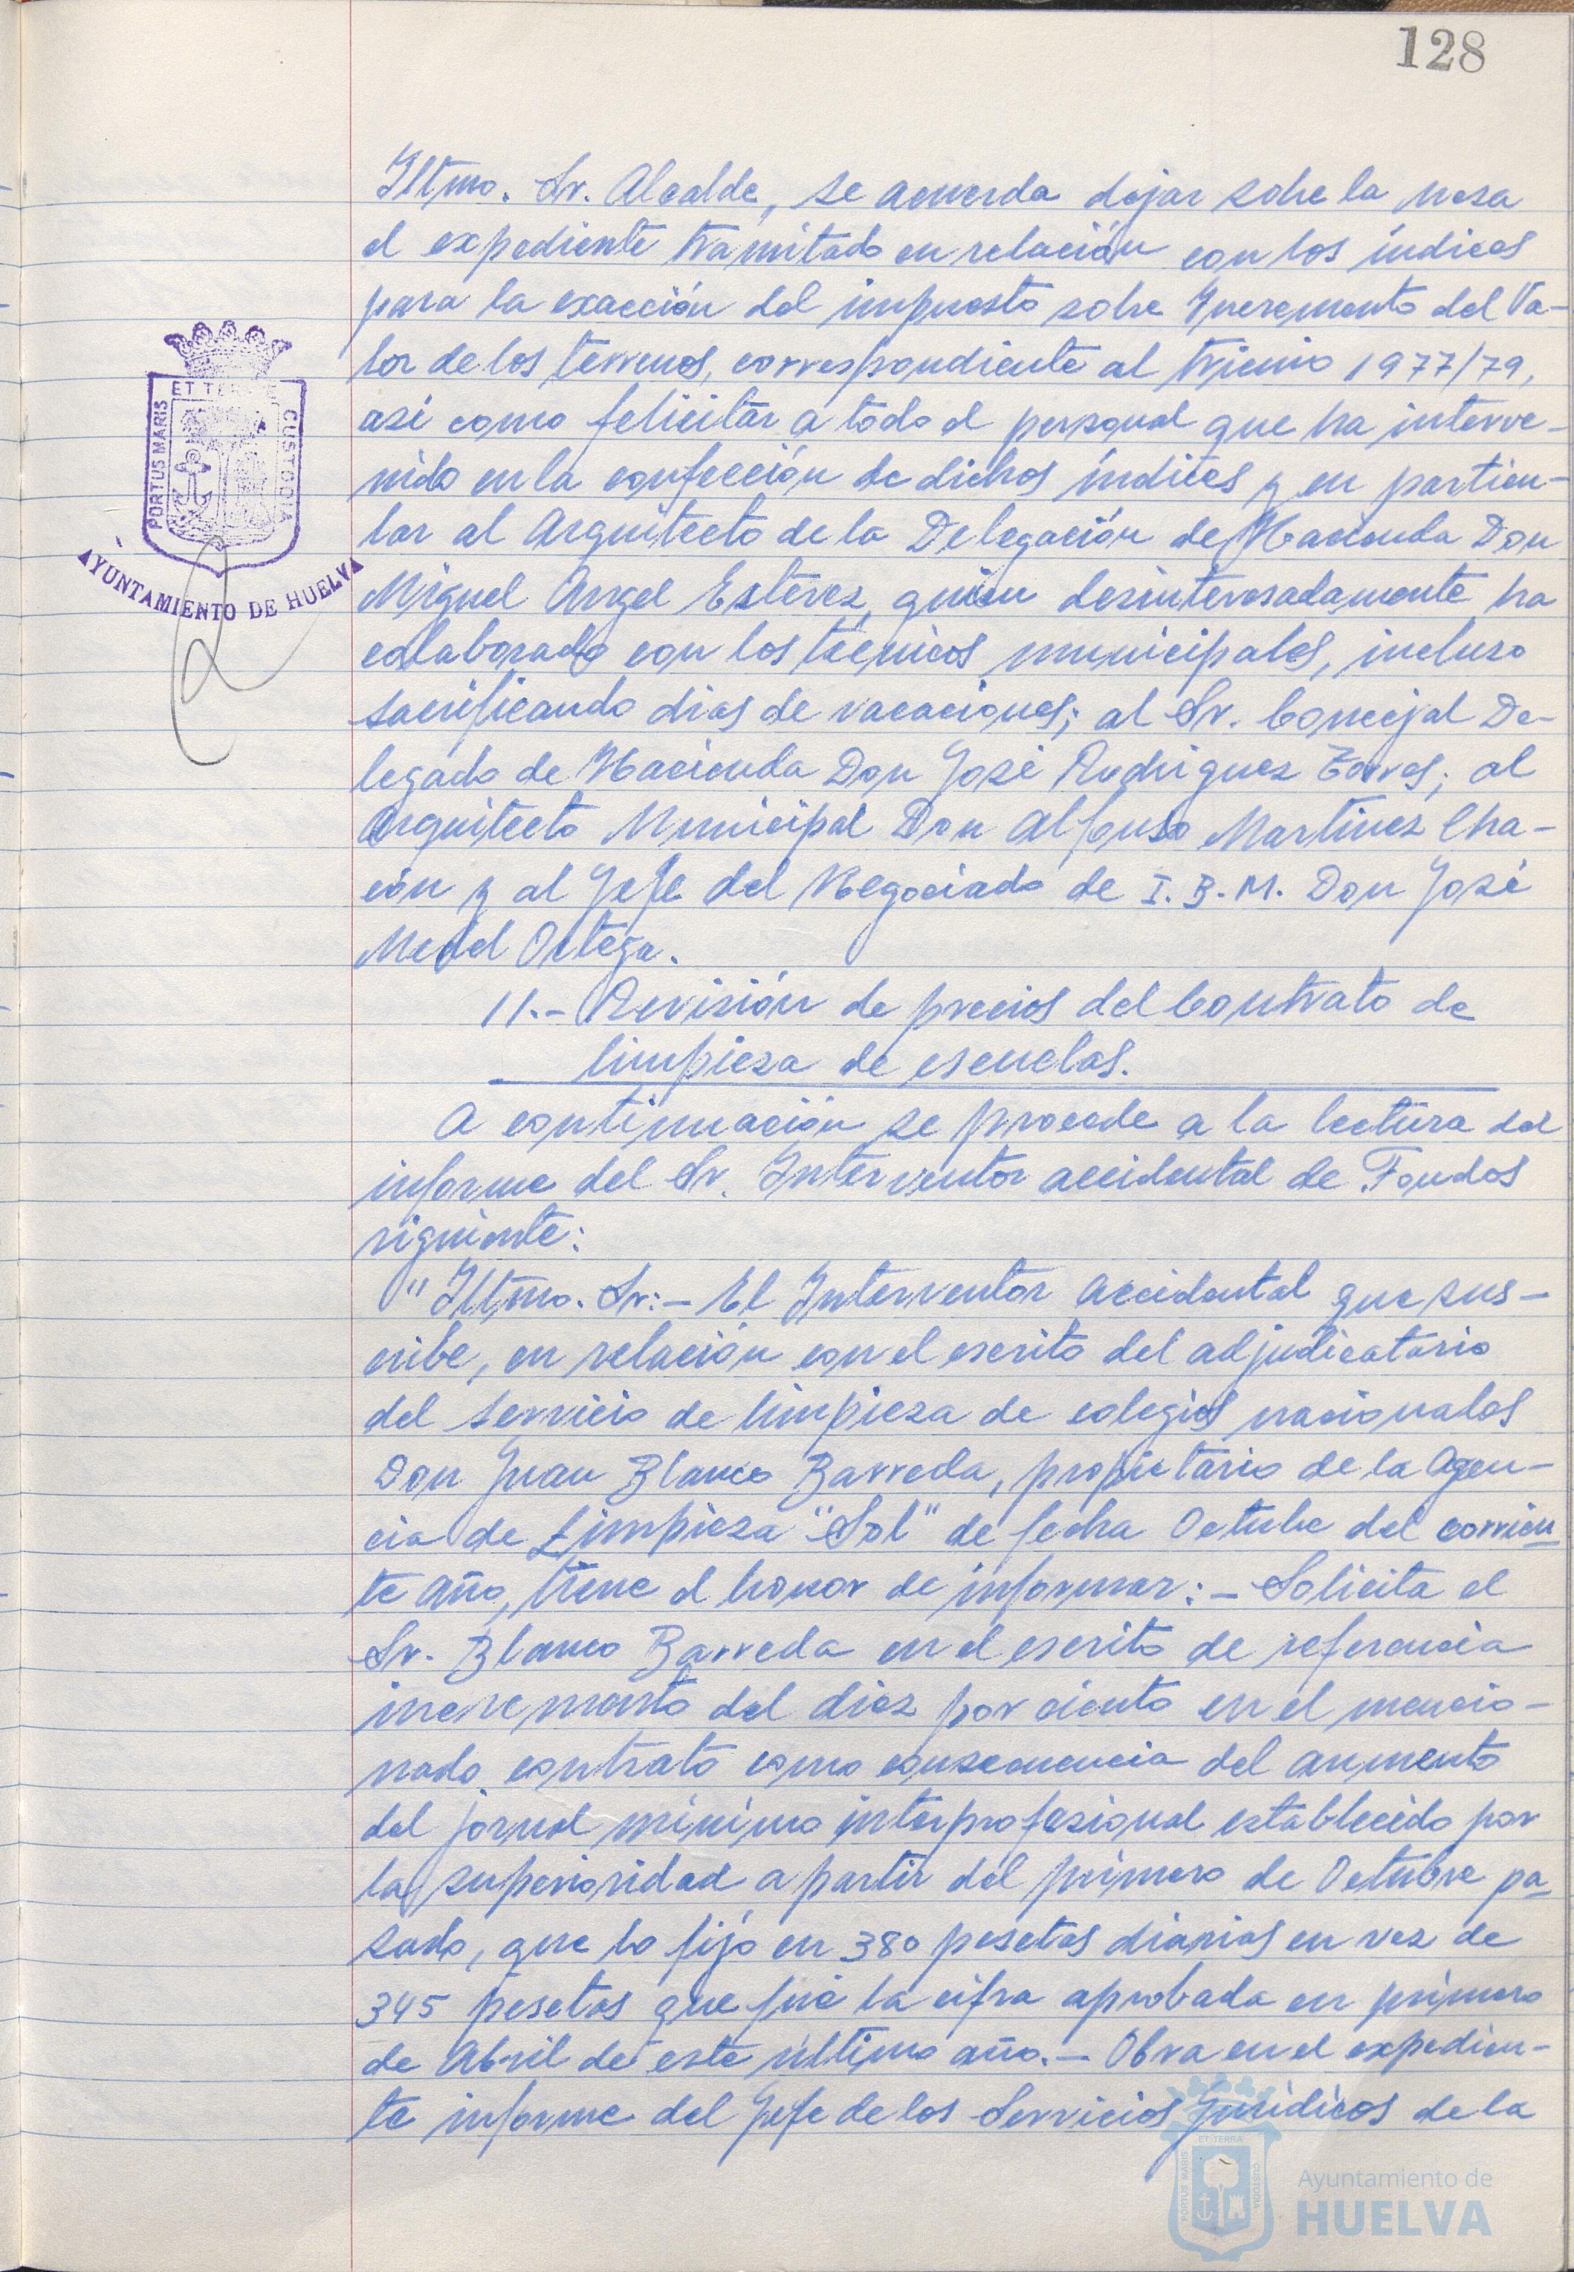 128
Iltmo. Sr. Alcalde, se acuerda dejar sobre la mesa
el expediente tramitado en relación con los índices
para la exacción del impuesto sobre Incremento del Va-
lor de los terrenos, correspondiente al trienio 1977/79,
asi como felicitar a todo el personal que ha interve-
nido en la confección de dichos índices y en particu-
lar al Arquitecto de la Delegación de Hacienda Don
Miguel Angel Estévez, quien desinteresadamente ha
colaborado con los técnicos municipales, incluso
sacrificando dias de vacaciones; al Sr. Concejal De-
legado de Hacienda Don José Rodriguez Torres; al
Arquitecto Municipal Don Alfonso Martinez Cha-
cón y al Jefe del Negociado de I.B.M. Don José
Medel Ortega.
11.- Revisión de precios del Contrato de
limpieza de escuelas.
A continuación se procede a la lectura del
informe del Sr. Interventor accidental de Fondos
siguiente:
"Iltmo. Sr:- El Interventor accidental que sus-
cribe, en relación con el escrito del adjudicatario
del servicio de limpieza de colegios nacionales
Don Juan Blanco Barreda, propietario de la Agen-
cia de Limpieza "Sol" de fecha Octubre del corrien-
te año, tiene el honor de informar:- Solicita el
Sr. Blanco Barreda en el escrito de referencia
incremento del diez por ciento en el mencio-
nado contrato como consecuencia del aumento
del jornal mínimo interprofesional establecido por
la superioridad a partir del primero de Octubre pa-
sado, que lo fijó en 380 pesetas diarias en vez de
345 pesetas que fué la cifra aprobada en primero
de Abril de este último año.- Obra en el expedien-
te informe del Jefe de los Servicios Jurídicos de la
PORTUS MARIS
ET TERRAE
CUSTODIA
AYUNTAMIENTO DE HUELVA
PORTUS MARIS
ET TERRA
CUSTODIA
Ayuntamiento de
HUELVA